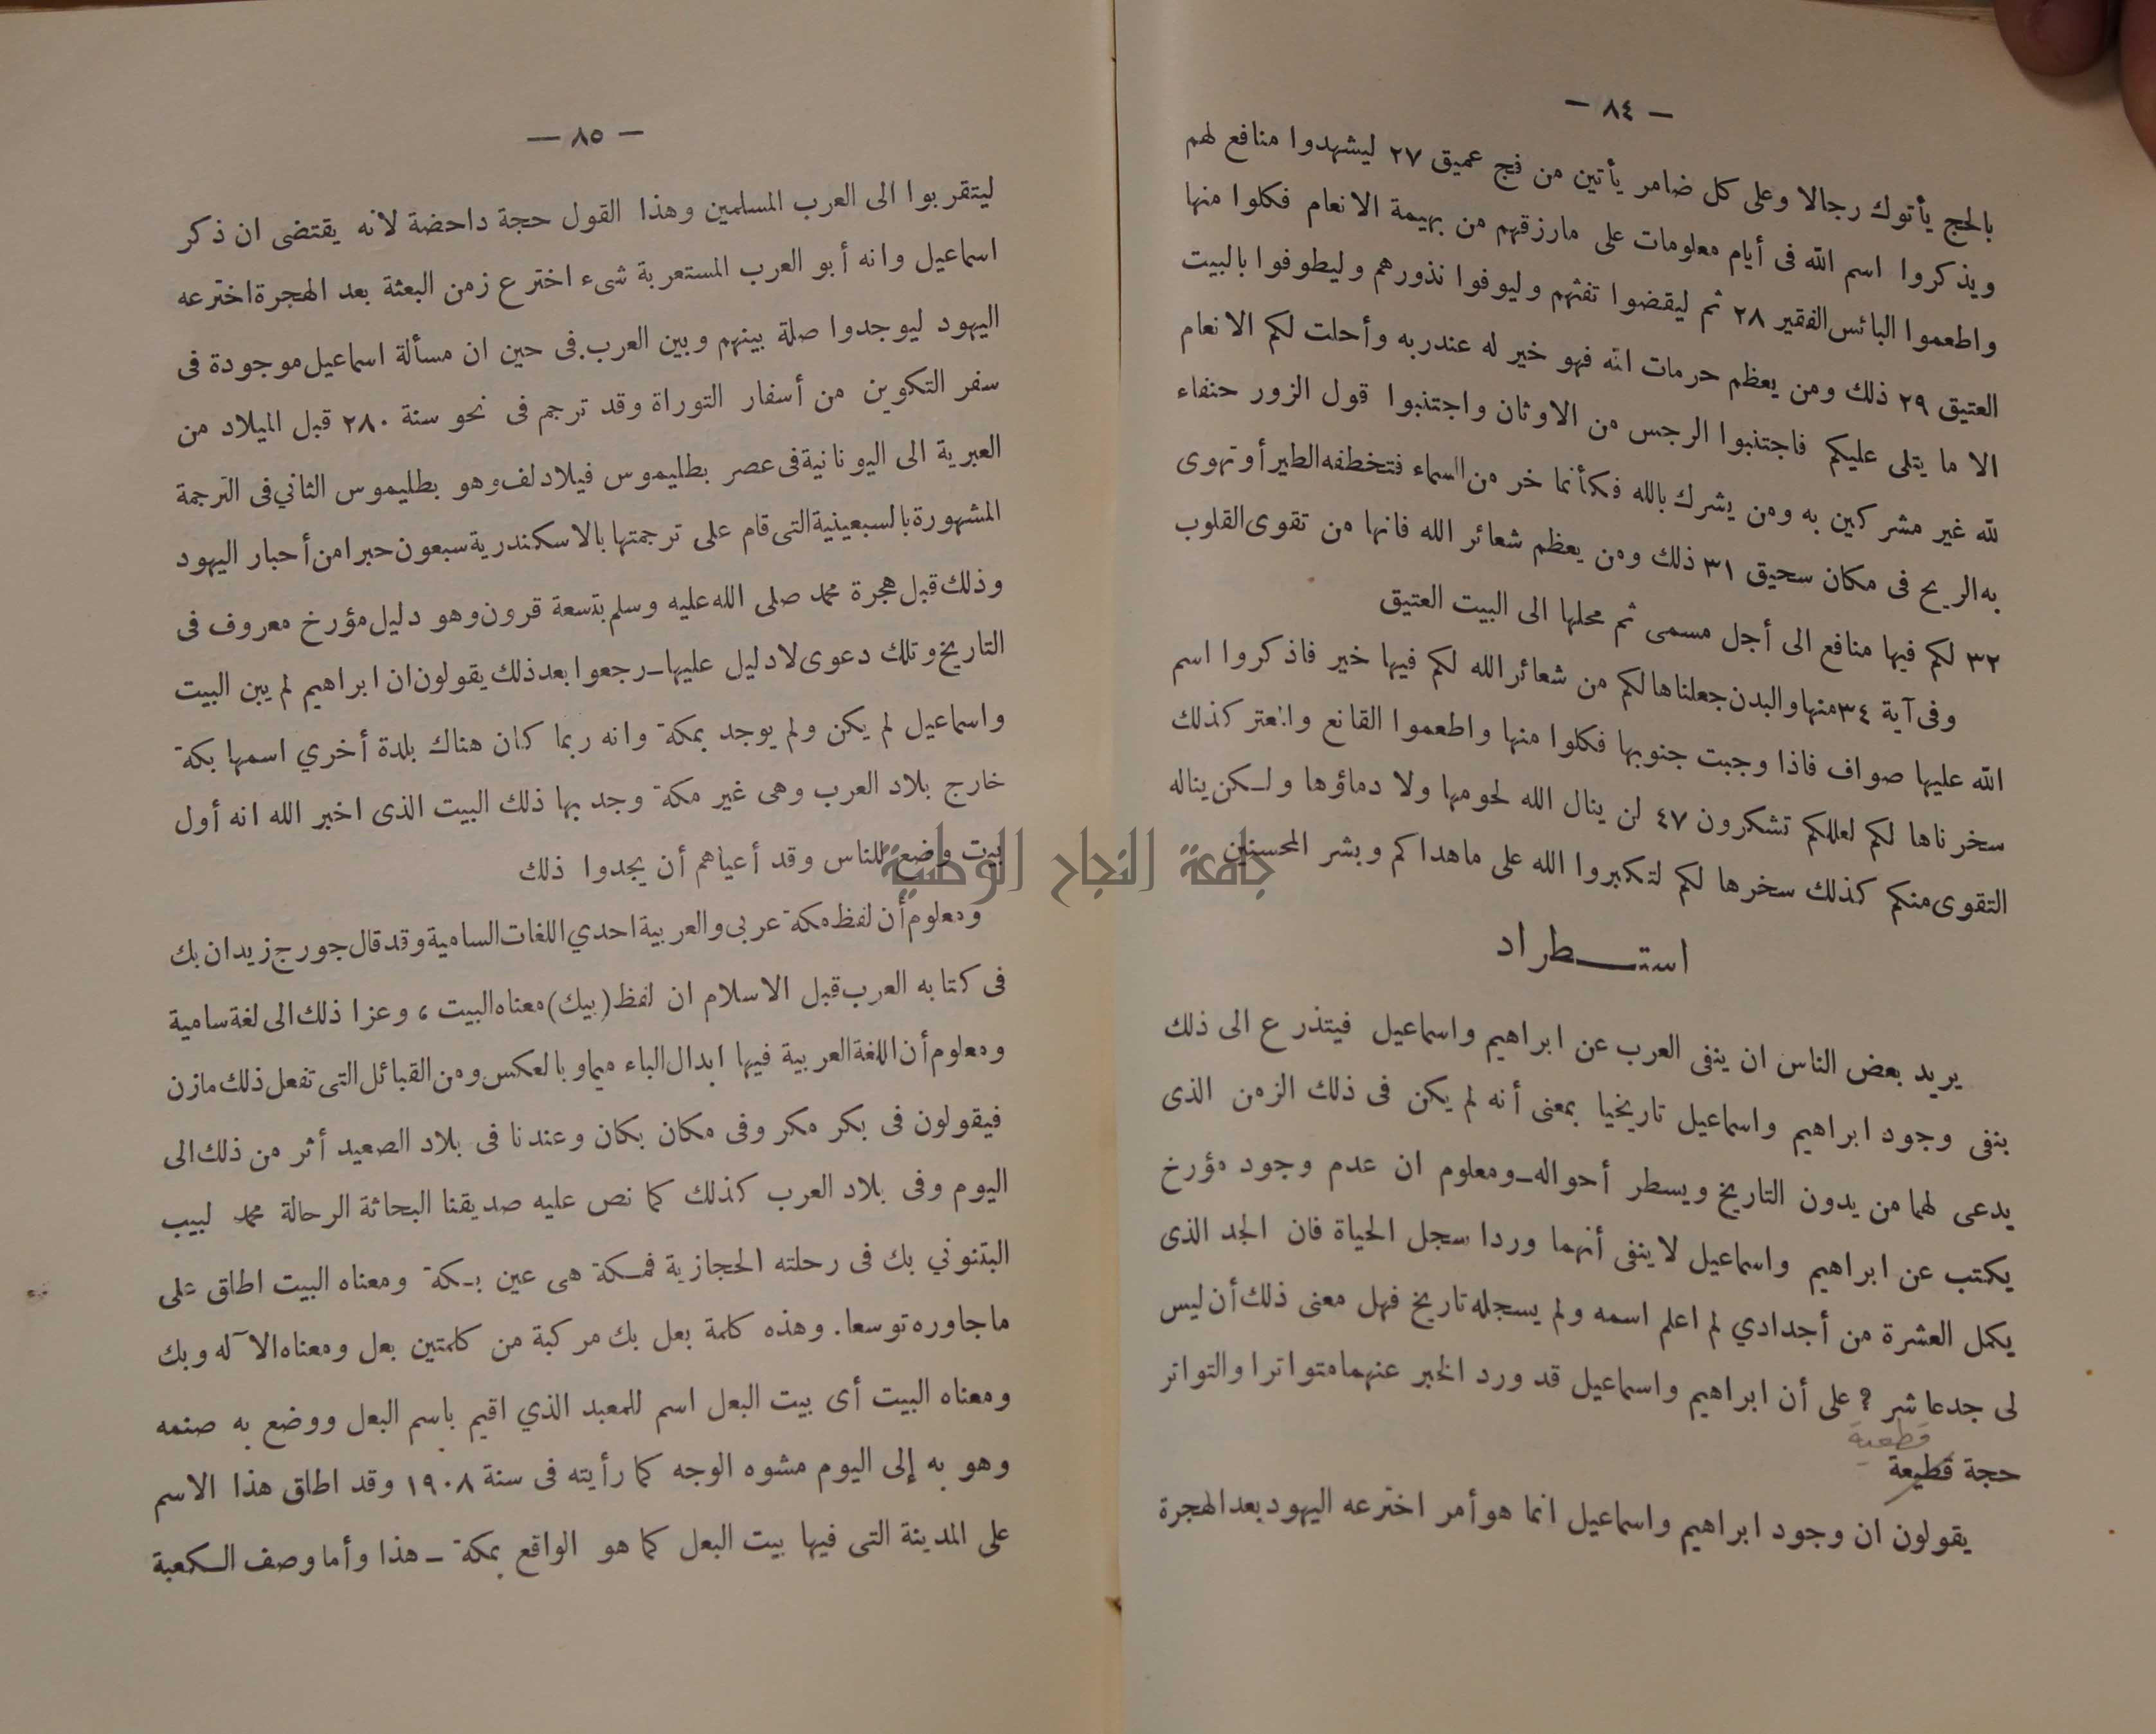 — ٨٤ —
بالحج يأتوك رجالا وعلى كل ضامر يأتين من فج عميق ٢٧ ليشهدوا منافع لهم
ويذكروا اسم الله فى أيام معلومات على مارزقهم من بهيمة الانعام فكلوا منها
واطعموا البائس الفقير ٢٨ ثم ليقضوا تفثهم وليوفوا نذورهم وليطوفوا بالبيت
العتيق ٢٩ ذلك ومن يعظم حرمات الله فهو خير له عندربه وأحلت لكم الانعام
الا ما يتلى عليكم فاجتنبوا الرجس من الاوثان واجتنبوا قول الزور حنفاء
لله غير مشركين به ومن يشرك بالله فكأنما خر من السماء فتخطفه الطير أو تهوى
به الريح فى مكان سحيق ٣١ ذلك ومن يعظم شعائر الله فانها من تقوى القلوب
٣٢ لكم فيها منافع الى أجل مسمى ثم محلها الى البيت العتيق
وفى آية ٣٤ منها والبدن جعلناها لكم من شعائر الله لكم فيها خير فاذكروا اسم
الله عليها صواف فاذا وجبت جنوبها فكلوا منها واطعموا القانع والمعتر كذلك
سخرناها لكم لعلكم تشكرون ٤٧ لن ينال الله لحومها ولا دماؤها ولكن يناله
التقوى منكم كذلك سخرها لكم لتكبروا الله على ماهداكم وبشر المحسنين
استطراد
يريد بعض الناس ان ينفى العرب عن ابراهيم واسماعيل فيتذرع الى ذلك
بنفى وجود ابراهيم واسماعيل تاريخيا بمعنى أنه لم يكن فى ذلك الزمن الذى
يدعى لهما من يدون التاريخ ويسطر أحواله ـ ومعلوم ان عدم وجود مؤرخ
يكتب عن ابراهيم واسماعيل لاينفى أنهما وردا سجل الحياة فان الجد الذى
يكمل العشرة من أجدادي لم اعلم اسمه ولم يسجله تاريخ فهل معنى ذلك أن ليس
لى جدعاشر ؟ على أن ابراهيم واسماعيل قد ورد الخبر عنهما متواترا والتواتر
قطعية
حجة قطيعة
يقولون ان وجود ابراهيم واسماعيل انما هو أمر اخترعه اليهود بعد الهجرة
— ٨٥ —
ليتقربوا الى العرب المسلمين وهذا القول حجة داحضة لانه يقتضى ان ذكر
اسماعيل وانه أبو العرب المستعربة شىء اخترع زمن البعثة بعد الهجرة اخترعه
اليهود ليوجدوا صلة بينهم وبين العرب. فى حين ان مسألة اسماعيل موجودة فى
سفر التكوين من أسفار التوراة وقد ترجم فى نحو سنة ٢٨٠ قبل الميلاد من
العبرية الى اليونانية فى عصر بطليموس فيلادلف وهو بطليموس الثاني فى الترجمة
المشهورة بالسبعينية التى قام على ترجمتها بالاسكندرية سبعون حبرا من أحبار اليهود
وذلك قبل هجرة محمد صلى الله عليه وسلم بتسعة قرون وهو دليل مؤرخ معروف فى
التاريخ وتلك دعوى لادليل عليها ـ رجعوا بعد ذلك يقولون ان ابراهيم لم يبن البيت
واسماعيل لم يكن ولم يوجد بمكة وانه ربما كان هناك بلدة أخري اسمها بكة
خارج بلاد العرب وهى غير مكة وجد بها ذلك البيت الذى اخبر الله انه أول
بيت وضع للناس وقد أعياهم أن يجدوا ذلك
ومعلوم أن لفظ مكة عربى والعربية احدي اللغات السامية وقد قال جورج زيدان بك
فى كتابه العرب قبل الاسلام ان لفظ (بيك) معناه البيت ، وعزا ذلك الى لغة سامية
ومعلوم أن اللغة العربية فيها ابدال الباء ميما وبالعكس ومن القبائل التى تفعل ذلك مازن
فيقولون فى بكر مكر وفى مكان بكان وعندنا فى بلاد الصعيد أثر من ذلك الى
اليوم وفى بلاد العرب كذلك كما نص عليه صديقنا البحاثة الرحالة محمد لبيب
البتنوني بك فى رحلته الحجازية فمكة هى عين بكة ومعناه البيت اطلق على
ماجاوره توسعا. وهذه كلمة بعل بك مركبة من كلمتين بعل ومعناه الآله وبك
ومعناه البيت أى بيت البعل اسم للمعبد الذي اقيم باسم البعل ووضع به صنمه
وهو به إلى اليوم مشوه الوجه كما رأيته فى سنة ١٩٠٨ وقد اطلق هذا الاسم
على المدينة التى فيها بيت البعل كما هو الواقع بمكة ـ هذا وأما وصف الكعبة
جامعة النجاح الوطنية